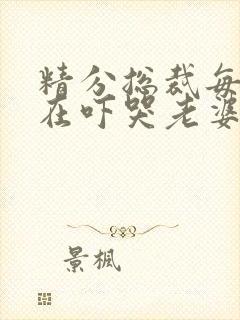 精分总裁每
在吓哭老婆
景枫